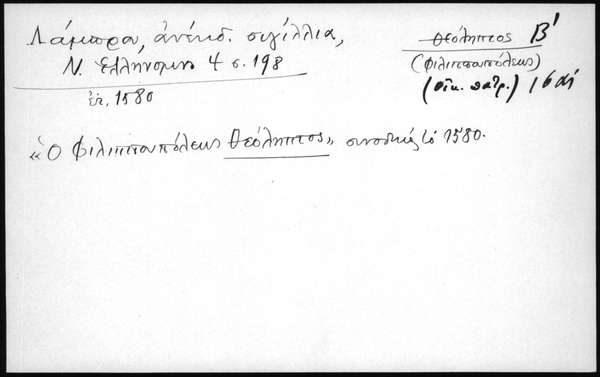 Λάμπρου, ἀνέκδ. σιγίλλια,
Ν. Ἑλληνομν 4 σ. 198
ἐτ. 1580
Θεόληπτος Β'
(Φιλιππουπόλεως)
(οἰκ. πατρ.) 16 αἰ
«Ὁ Φιλιππουπόλεως Θεόληπτος» συνοδικῶς 1580.